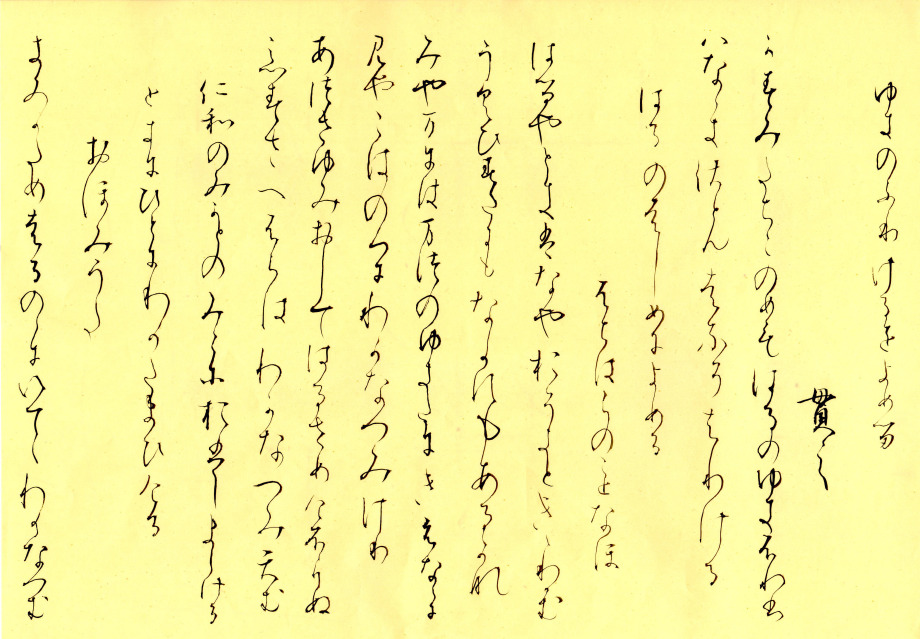 ゆきのふりけるをよめる
貫之
かすみたちこのめもはるのゆきふれは
ハなゝきさともはなそちりける
はるのはしめによめる
ふちはらのことなほ
はるやときはなやおそきときゝわかむ
うくひすたにもなかすもあるかな
みやまにはまつのゆきたにきえなくに
みやこはのへのわかなつみけり
あつさゆみおしてはるさめけふふりぬ
あすさへふらはわかなつみてむ
仁和のみかとのみこにおはしましける
ときにひとにわかなたまひける
おほみうた
きみかためはるのゝにいてゝわかなつむ